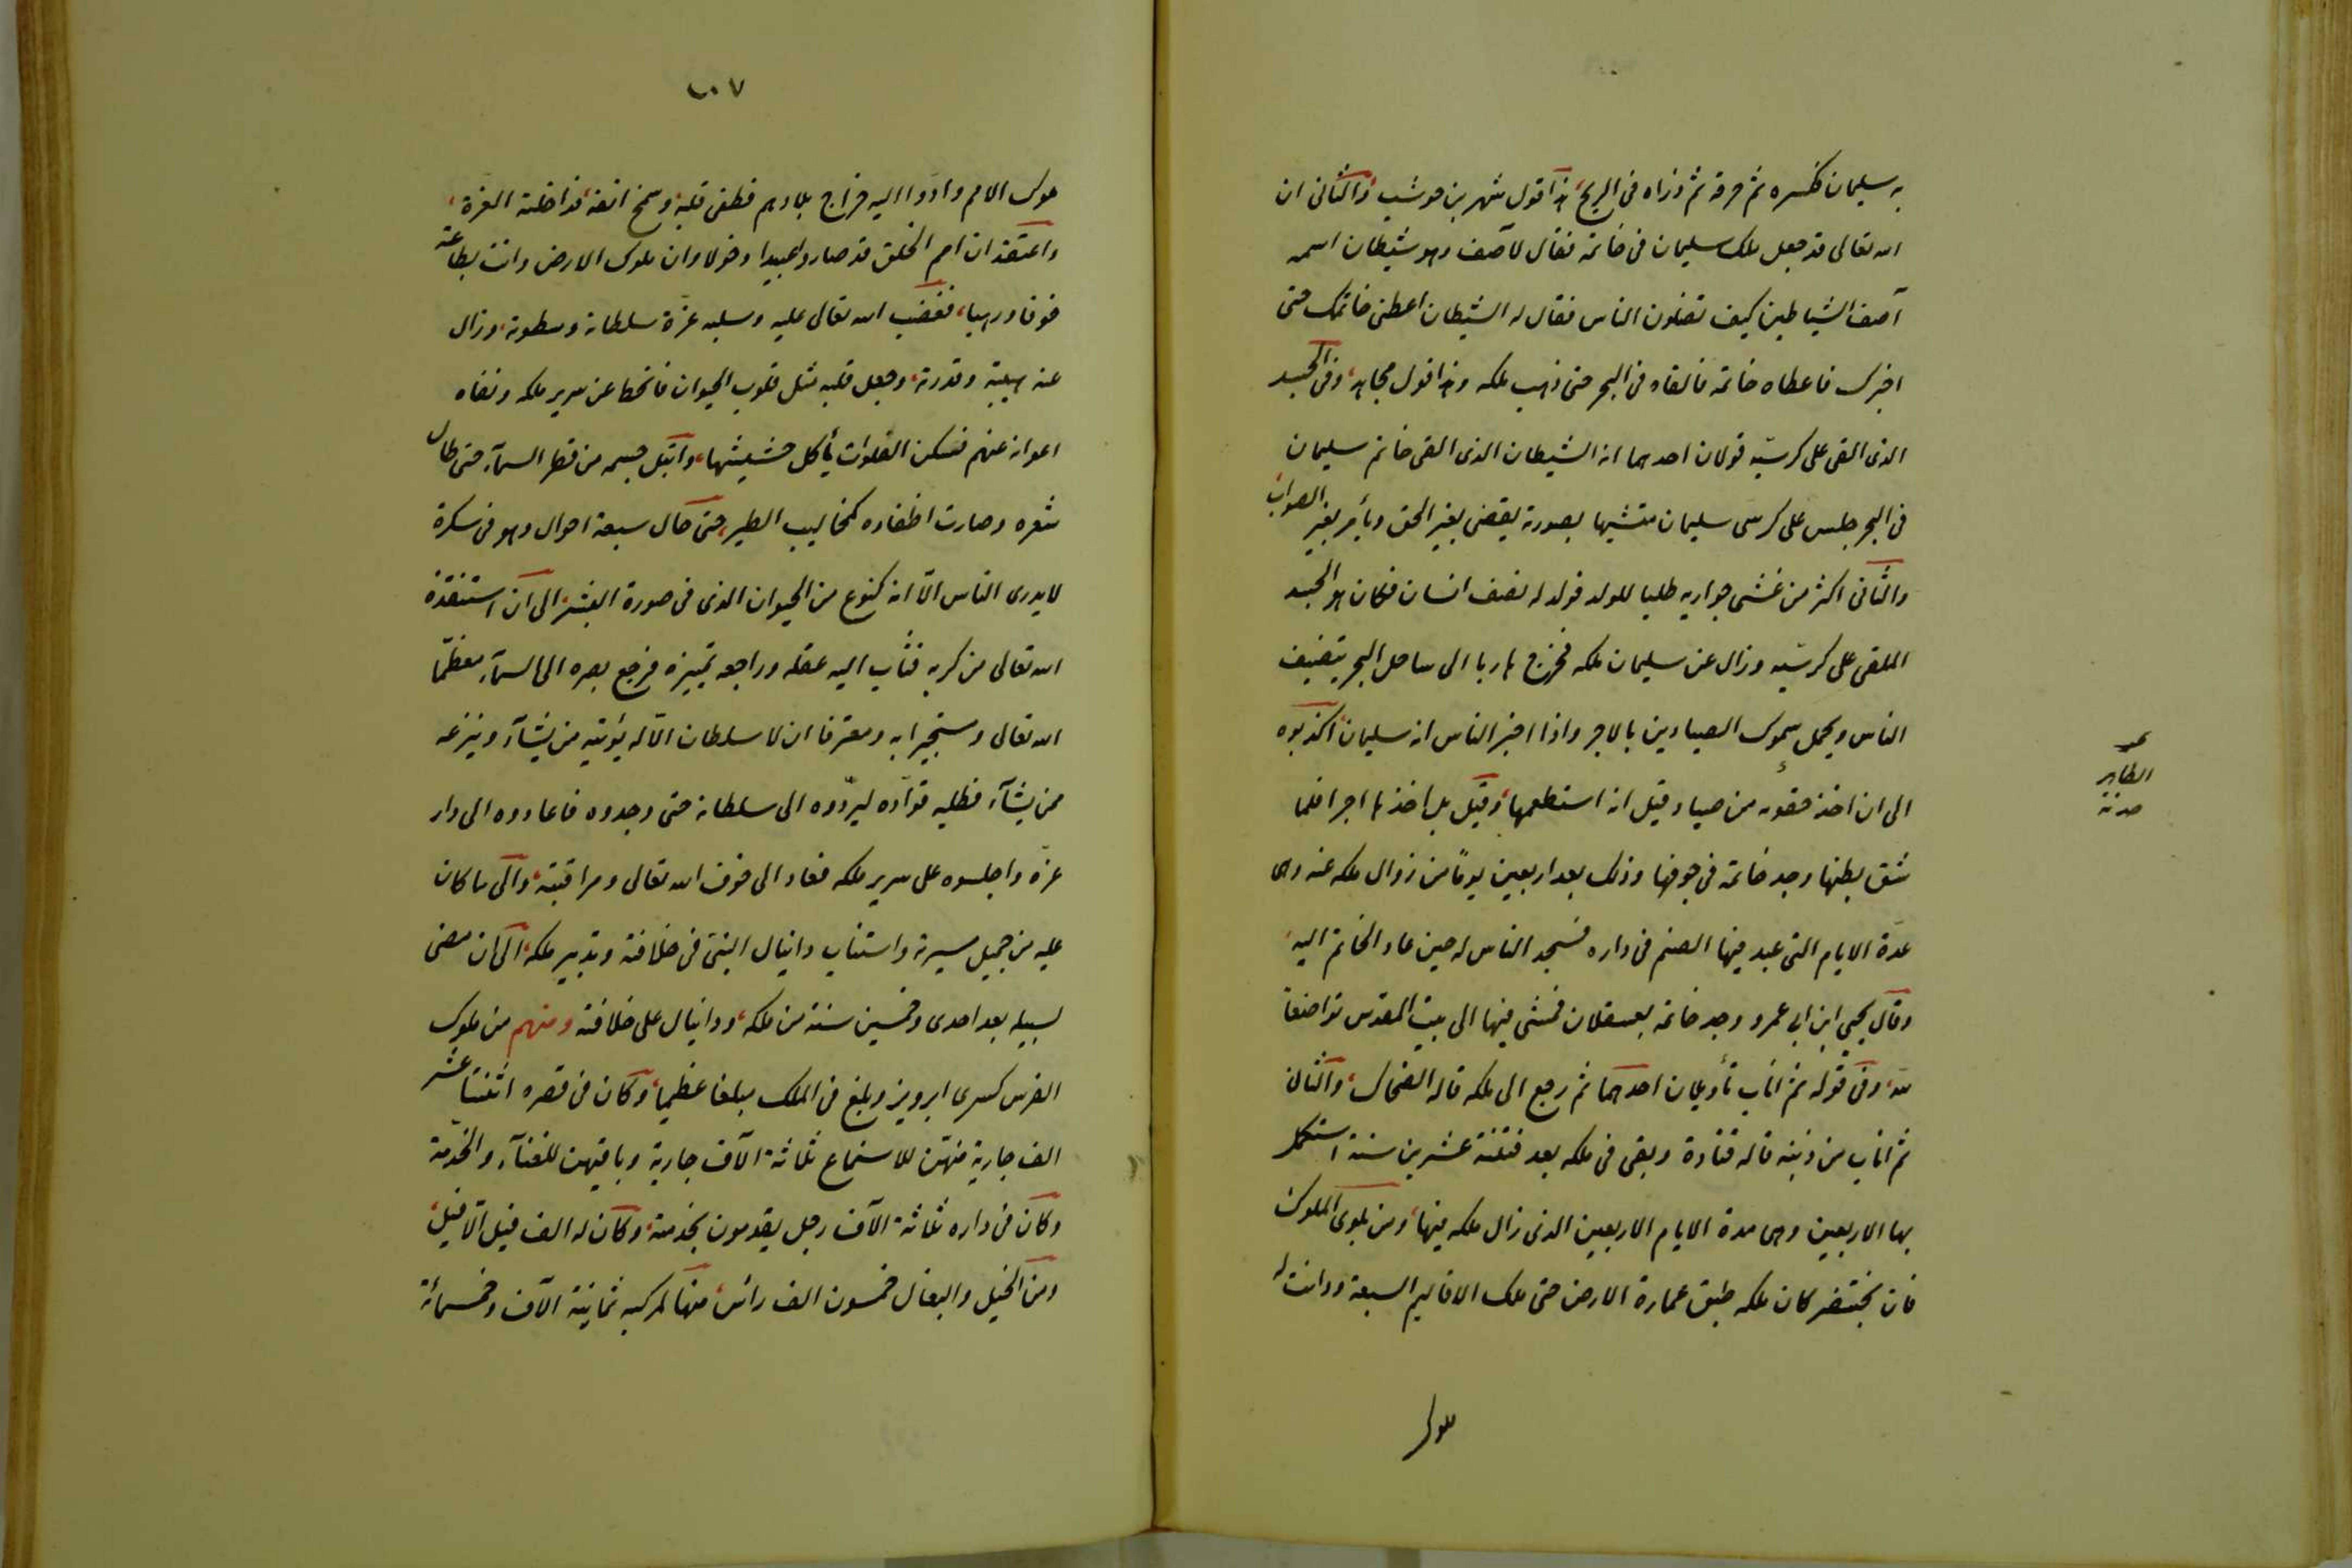 به سليمان فكسره ثم حرقه ثم ذراه فى الريح، هذا قول شهر بن حوشب، والثانى ان
الله تعالى قد جعل ملك سليمان فى خاتمه فقال لآصف وهو شيطان اسمه
آصف الشياطين كيف تضلون الناس فقال له الشيطان اعطنى خاتمك حتى
اخبرك فاعطاه خاتمه فالقاه فى البحر حتى ذهب ملكه وهذا قول مجاهد، وفى الجسد
الذى القى على كرسيّه قولان احدهما انه الشيطان الذى القى خاتم سليمان
فى البحر جلس على كرسى سليمان متشبها بصورته يقضى بغير الحق ويأمر بغير الصواب،
والثانى اكثر من غشى جواريه طلبا للولد فولد له نصف انسان فكان هو الجسد
الملقى على كرسيّه وزال عن سليمان ملكه فخرج هاربا الى ساحل البحر يتضيف
الناس ويحمل سموك الصيادين بالاجر واذا اخبر الناس انه سليمان، اكذبوه
الى ان اخذ حقوه من صياد قيل انه استطعمها، وقيل بل اخذها اجرا فلما
شق بطنها وجد خاتمه فى جوفها وذلك بعد اربعين يومًا من زوال ملكه عنه وهى
عدّة الايام التى عبد فيها الصنم فى داره فسجد الناس له حين عاد الخاتم اليه،
وقال يحيى ابن ابى عمرو وجد خاتمه بعسقلان فمشى فيها الى بيت المقدس تواضعاً
لله، وفى قوله ثم اناب تأويلان احدهما ثم رجع الى ملكه قاله الضحاك، والثانى
ثم اناب من ذنبه قاله قتادة وبقى فى ملكه بعد فتنته عشرين سنة استكمل
بها الاربعين وهى مدة الايام الاربعين الذى زال ملكه فيها، ومن بلوى الملوك
فان بختنصر كان ملكه طبق عمارة الارض حتى ملك الاقاليم السبعة ودانت له
ملوك
الظاهر
٦٠٧
ملوك الامم وادّوا اليه خراج بلادهم فطغى قلبه وشمخ انفه، قد اخذته العزة،
واعتقد ان امم الخلق قد صاروا عبيدا وخولا وان ملوك الارض دانت بطاعته
خوفا ورهبا، فغضب الله تعالى عليه وسلبه عزّة سلطانه وسطوته، وزال
عنه هيبته وقدرته، وجعل قلبه مثل قلوب الحيوان فانحط عن سرير ملكه ونفاه
اعوانه عنهم فسكن الفلوات يأكل حشيشها، وابتل جسمه من قطر السمآء حتى طال
شعره وصارت اظفاره كمخاليب الطير، حتى حال سبعة احوال وهو فى سكرة
لا يدرى الناس الّا انه كنوع من الحيوان الذى فى صورة البشر، الى ان استنقذه
الله تعالى من كربه فثاب اليه عقله وراجعه تمييزه فرجع بصره الى السمآء معظّما
الله تعالى ومستجيرا به ومعترفا ان لا سلطان الّا له يؤتيه من يشآء وينزعه
ممن يشآء فطلبه قوّاده ليردّوه الى سلطانه حتى وجدوه فاعادوه الى دار
عزّه واجلسوه على سرير ملكه فعاد الى خوف الله تعالى ومراقبته، والى ما كان
عليه من جميل سيرته واستناب دانيال النبى فى خلافته وتدبير ملكه، الى ان مضى
لسبيله بعد احدى وخمسين سنة من ملكه، ودانيال على خلافته ومنهم من ملوك
الفرس كسرى ابرويز وبلغ فى الملك مبلغا عظيما، وكان فى قصره اثنتا عشر
الف جارية منهنّ للاستماع ثلاثة آلاف جارية وباقيهن للغنآء والخدمة
وكان فى داره ثلاثة آلاف رجل يقومون بخدمته، وكان له الف فيل الّا فيل،
ومن الخيل والبغال خمسون الف رأس، منها لمركبه ثمانية آلاف وخمسمائة